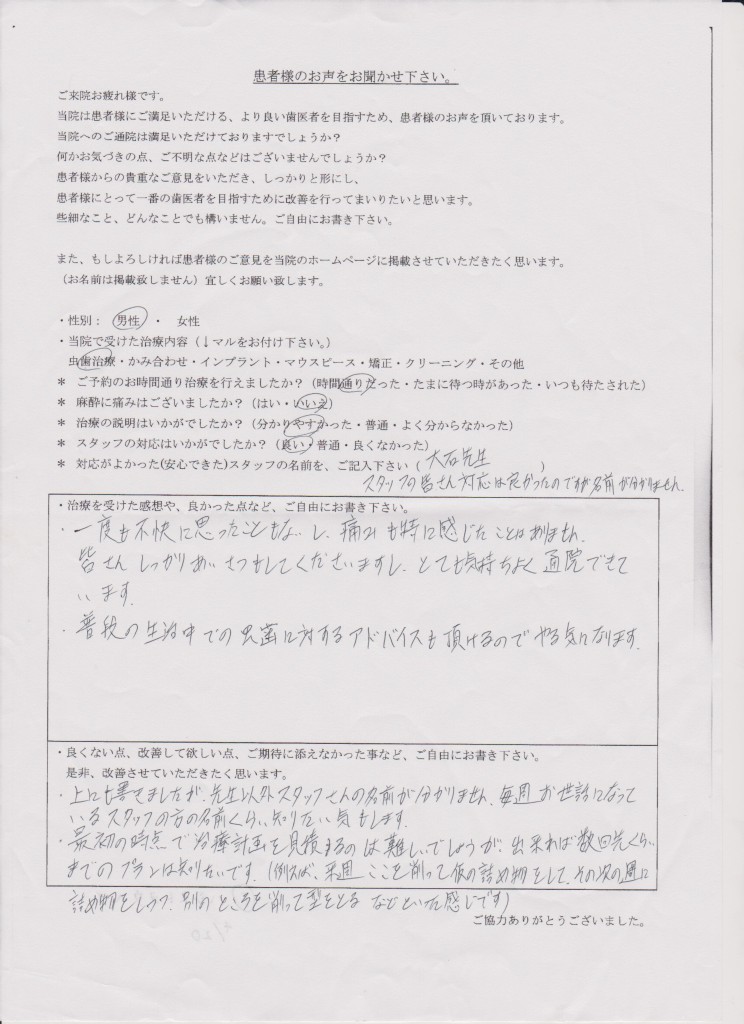 患者様のお声をお聞かせ下さい。
ご来院お疲れ様です。
当院は患者様にご満足いただける、より良い歯医者を目指すため、患者様のお声を頂いております。
当院へのご通院は満足いただけておりますでしょうか？
何かお気づきの点、ご不明な点などはございませんでしょうか？
患者様からの貴重なご意見をいただき、しっかりと形にし、
患者様にとって一番の歯医者を目指すために改善を行ってまいりたいと思います。
些細なこと、どんなことでも構いません。ご自由にお書き下さい。
また、もしよろしければ患者様のご意見を当院のホームページに掲載させていただきたく思います。
（お名前は掲載致しません）宜しくお願い致します。
・性別： 男性 ・ 女性
・当院で受けた治療内容（↓マルをお付け下さい。）
虫歯治療・かみ合わせ・インプラント・マウスピース・矯正・クリーニング・その他
＊ ご予約のお時間通り治療を行えましたか？（時間通りだった・たまに待つ時があった・いつも待たされた）
＊ 麻酔に痛みはございましたか？（はい・いいえ）
＊ 治療の説明はいかがでしたか？（分かりやすかった・普通・よく分からなかった）
＊ スタッフの対応はいかがでしたか？（良い・普通・良くなかった）
＊ 対応がよかった(安心できた)スタッフの名前を、ご記入下さい（ 大石先生 ）
スタッフの皆さん対応は良かったのですが名前が分かりません。
・治療を受けた感想や、良かった点など、ご自由にお書き下さい。
・一度も不快に思ったこともないし、痛みも特に感じたことはありません。
皆さんしっかりあいさつもしてくださいますし、とても気持ちよく通院できて
います。
・普段の生活中での虫歯に対するアドバイスも頂けるのでやる気になります。
・良くない点、改善して欲しい点、ご期待に添えなかった事など、ご自由にお書き下さい。
是非、改善させていただきたく思います。
・上にも書きましたが、先生以外スタッフさんの名前が分かりません。毎週お世話になって
いるスタッフの方の名前くらい知りたい気もします。
・最初の時点で治療計画を見積するのは難しいでしょうが、出来れば数回先くらい
までのプランは知りたいです。（例えば、来週ここを削って仮の詰め物をして、その次の週に
詰め物をしつつ、別のところを削って型をとるなどといった感じです）
ご協力ありがとうございました。